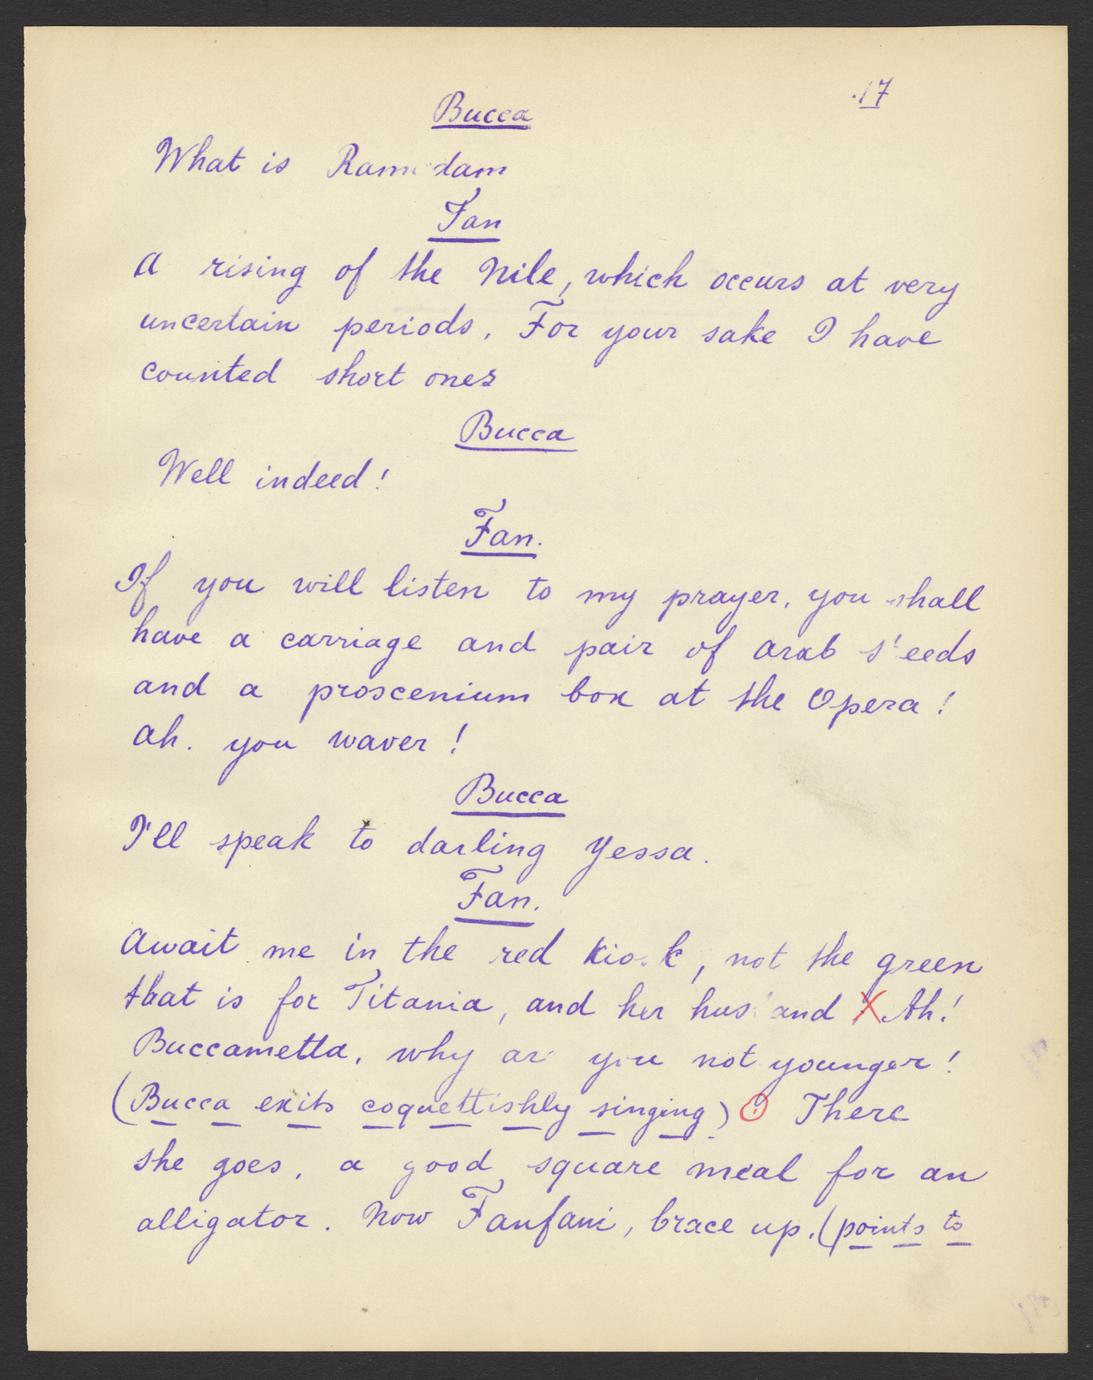 17
Bucca
What is Ramadam
Fan
A rising of the Nile, which occurs at very
uncertain periods. For your sake I have
counted short ones
Bucca
Well indeed!
Fan.
If you will listen to my prayer, you shall
have a carriage and pair of Arab steeds
and a proscenium box at the Opera!
Ah. you waver!
Bucca
I'll speak to darling Yessa.
Fan.
Await me in the red kiosk, not the green
that is for Titania, and her husband X Ah!
Buccametta, why are you not younger!
(Bucca exits coquettishly singing) There
she goes, a good square meal for an
alligator. Now Fanfani, brace up. (points to